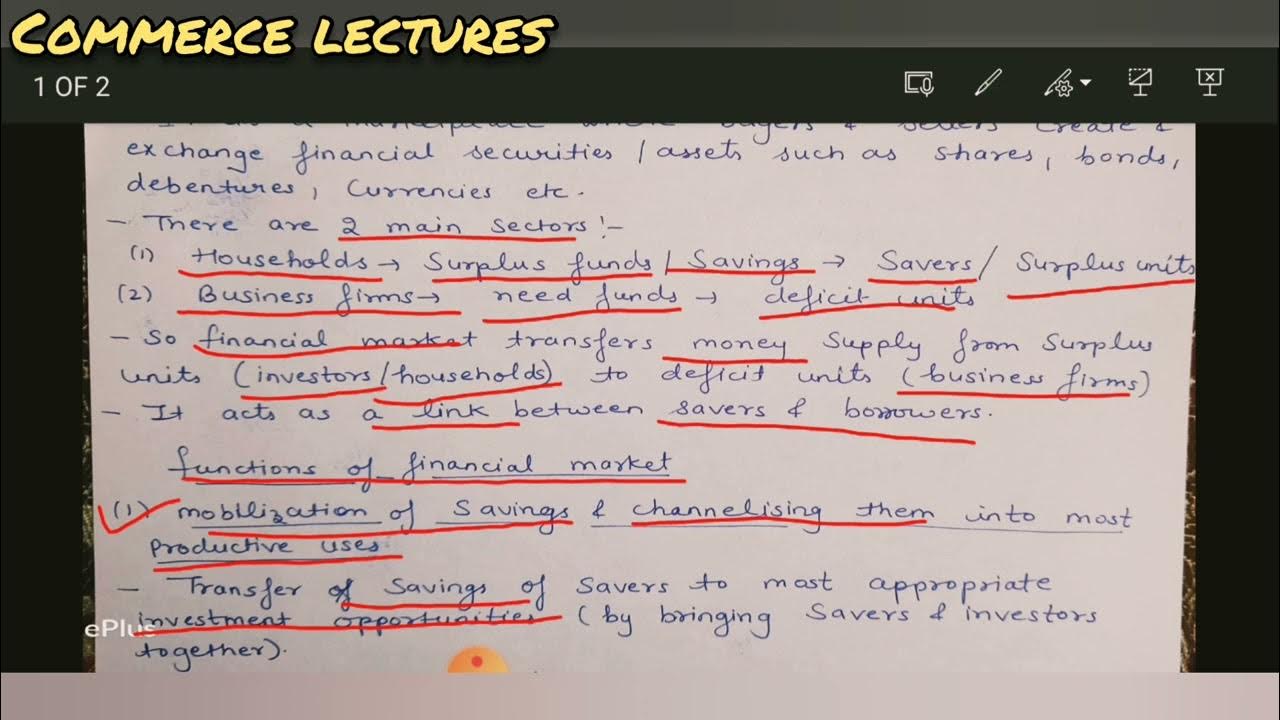 COMMERCE LECTURES
1 OF 2
buyers & sellers create &
exchange financial securities / assets such as shares, bonds,
debentures, currencies etc.
- There are 2 main sectors :-
(1) Households → Surplus funds / Savings → Savers / Surplus units
(2) Business firms → need funds → deficit units
- So financial market transfers money supply from surplus
units (investors/households) to deficit units (business firms)
- It acts as a link between savers & borrowers.
functions of financial market
(1) mobilization of savings & channelising them into most
productive uses
- Transfer of savings of savers to most appropriate
investment opportunities (by bringing savers & investors
together).
ePlus